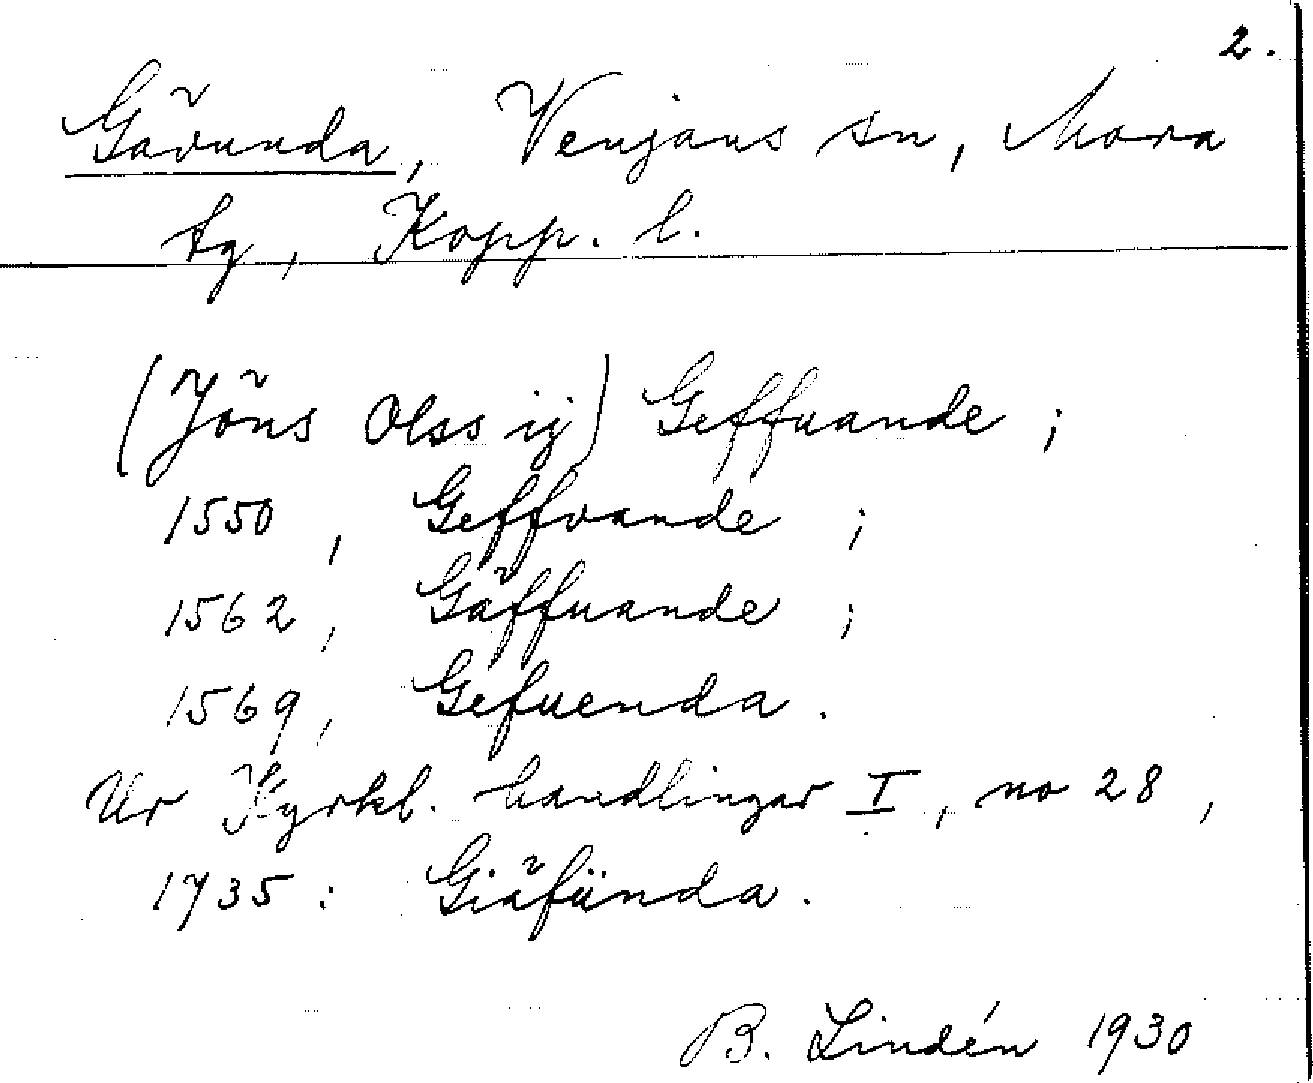 2.
Gävunda, Venjans sn, Mora
tg, Kopp. l.
(Jöns Olss ij) Geffuande ;
1550 , Geffvande ;
1562 , Gäffuande ;
1569 , Gefuenda .
Ur Kyrkl. handlingar I , no 28 ,
1735 : Giäfünda .
B. Lindén 1930